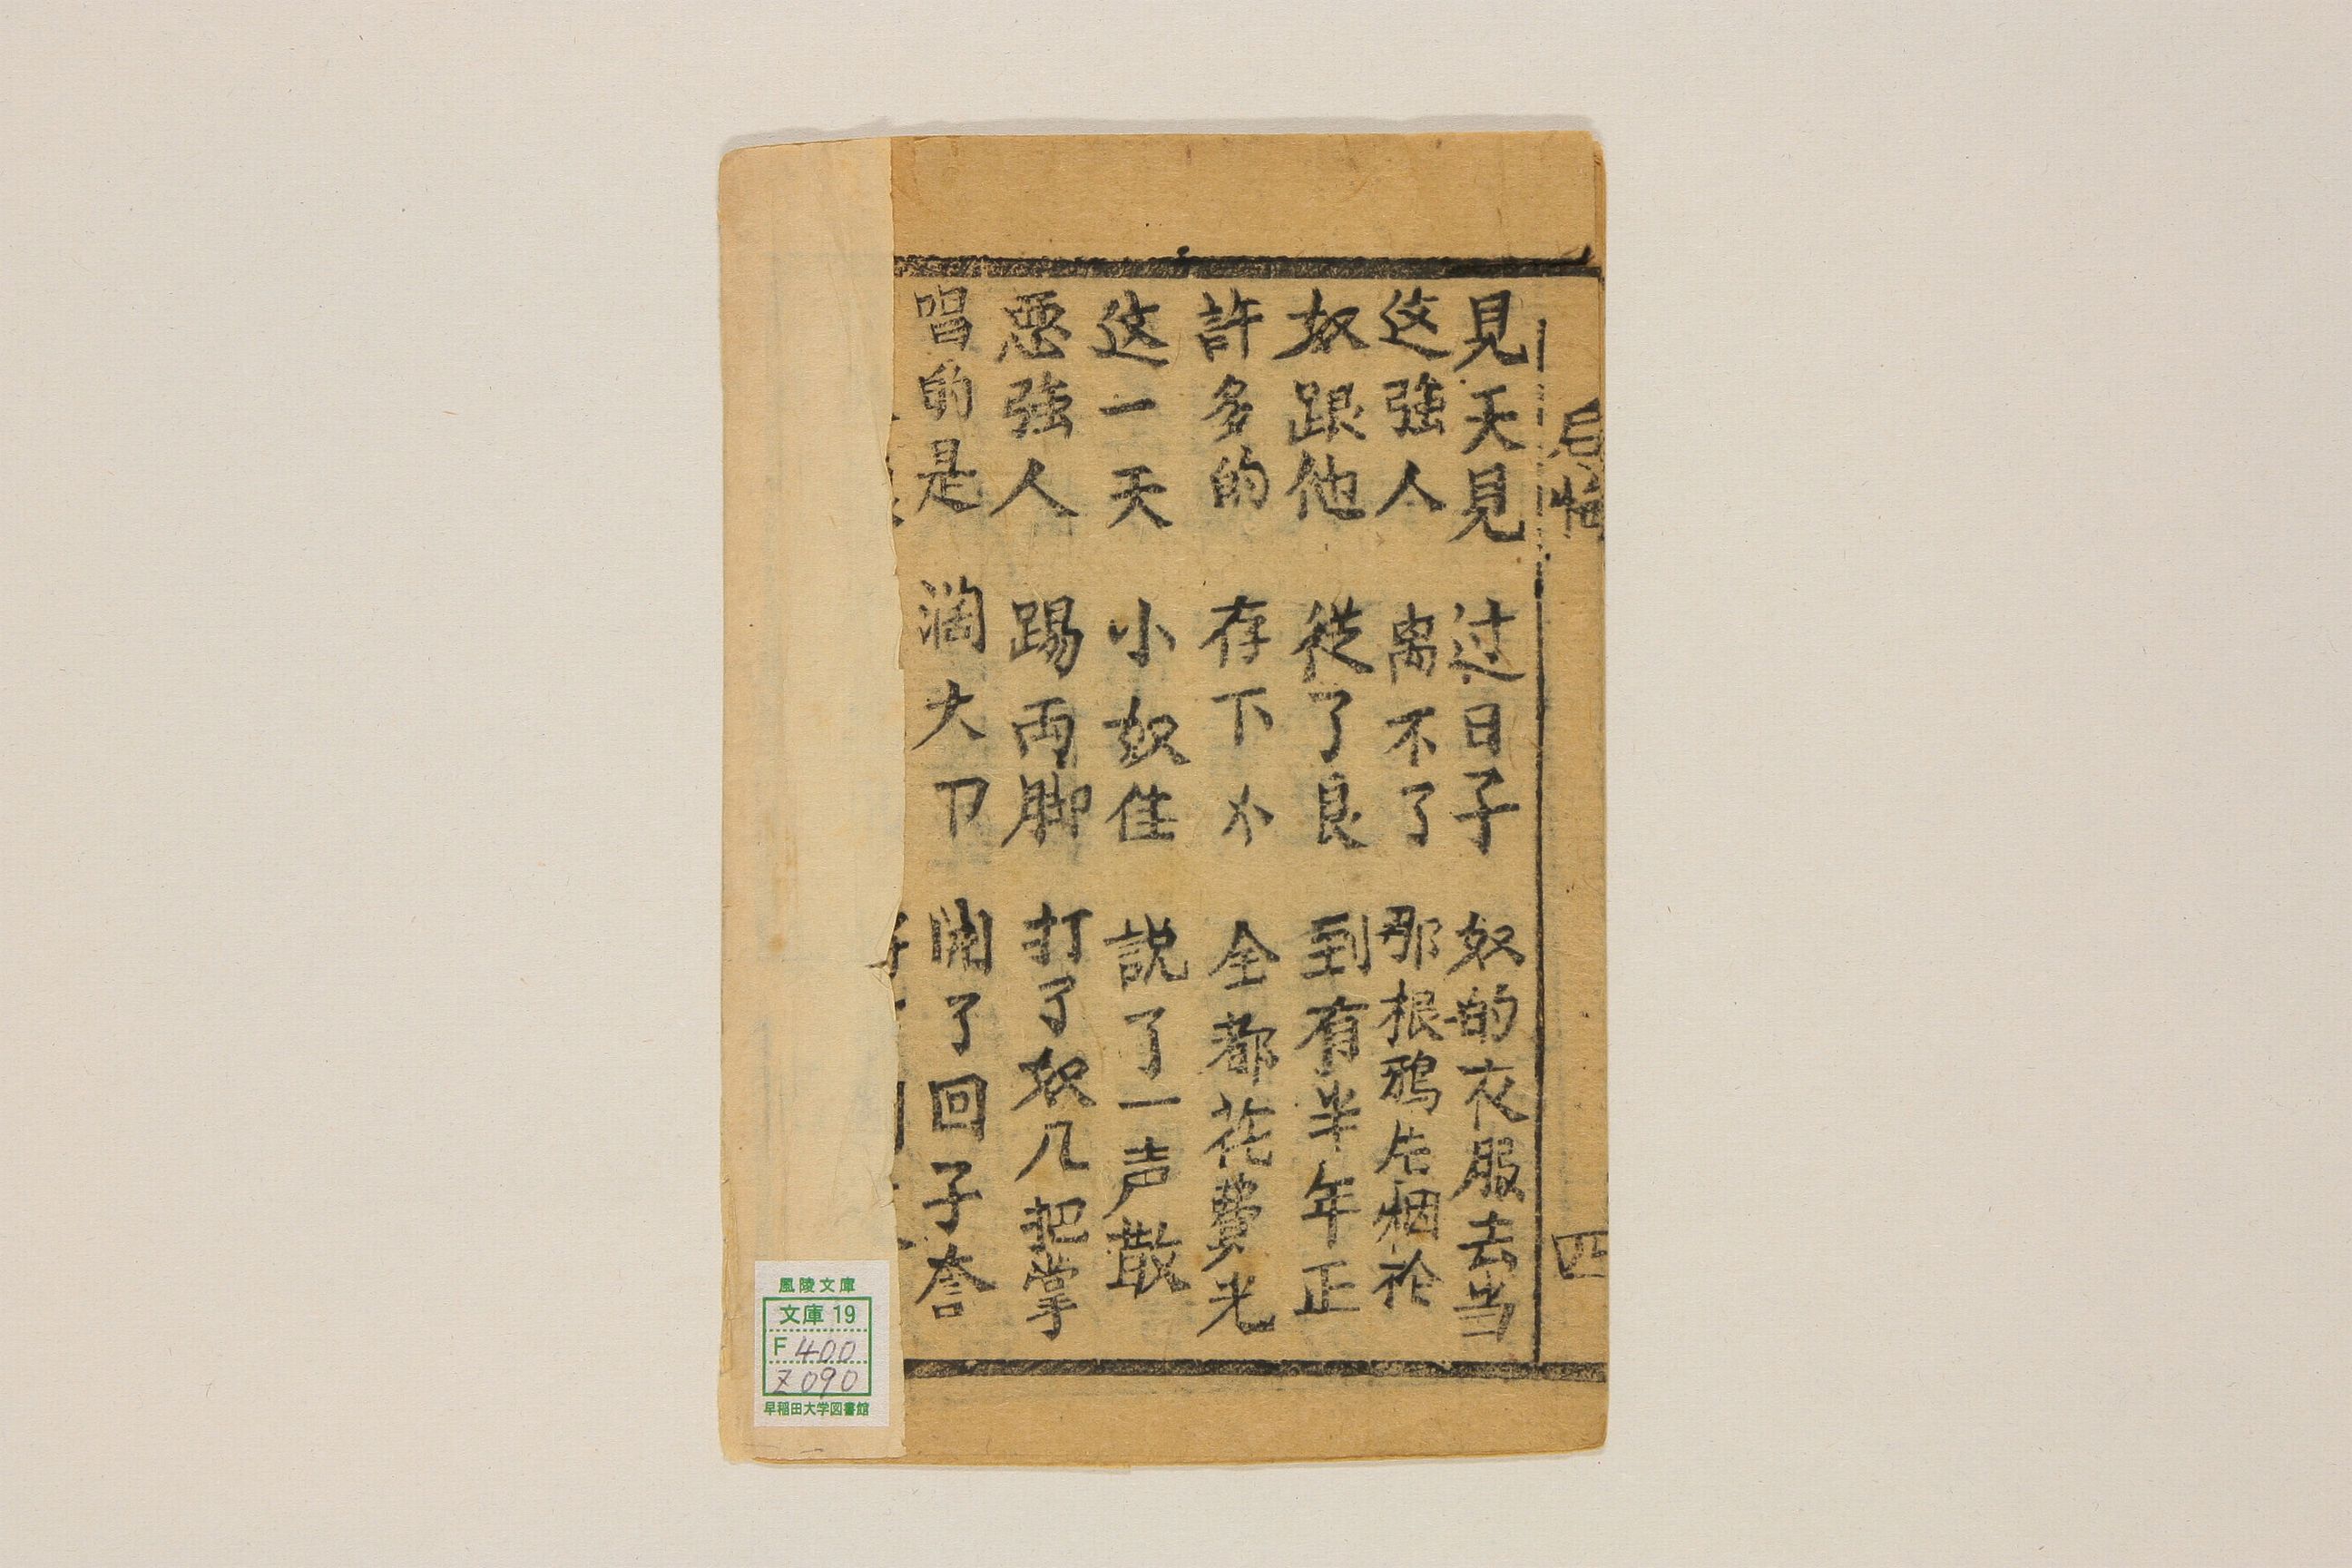 見天見　过日子　奴的衣服去当
这強人　离不了　那根鴉片烟
奴跟他　從了良　到有半年正
許多的　存下　全都花費光
这一天　小奴佳　説了一声散
惡強人　踢両脚　打了奴几把掌
唱的是　大卩　開了回子
后悔
四
風陵文庫
文庫 19
F 400
Z 090
早稲田大学図書館